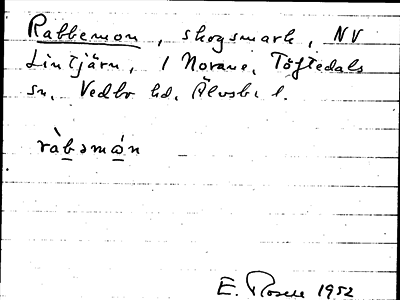 Rabbemon, skogsmark, NV
Lintjärn, i Norane, Töftedals
sn, Vedbo hd, Älvsb. l.
ràbəmán
E. Rosell 1952